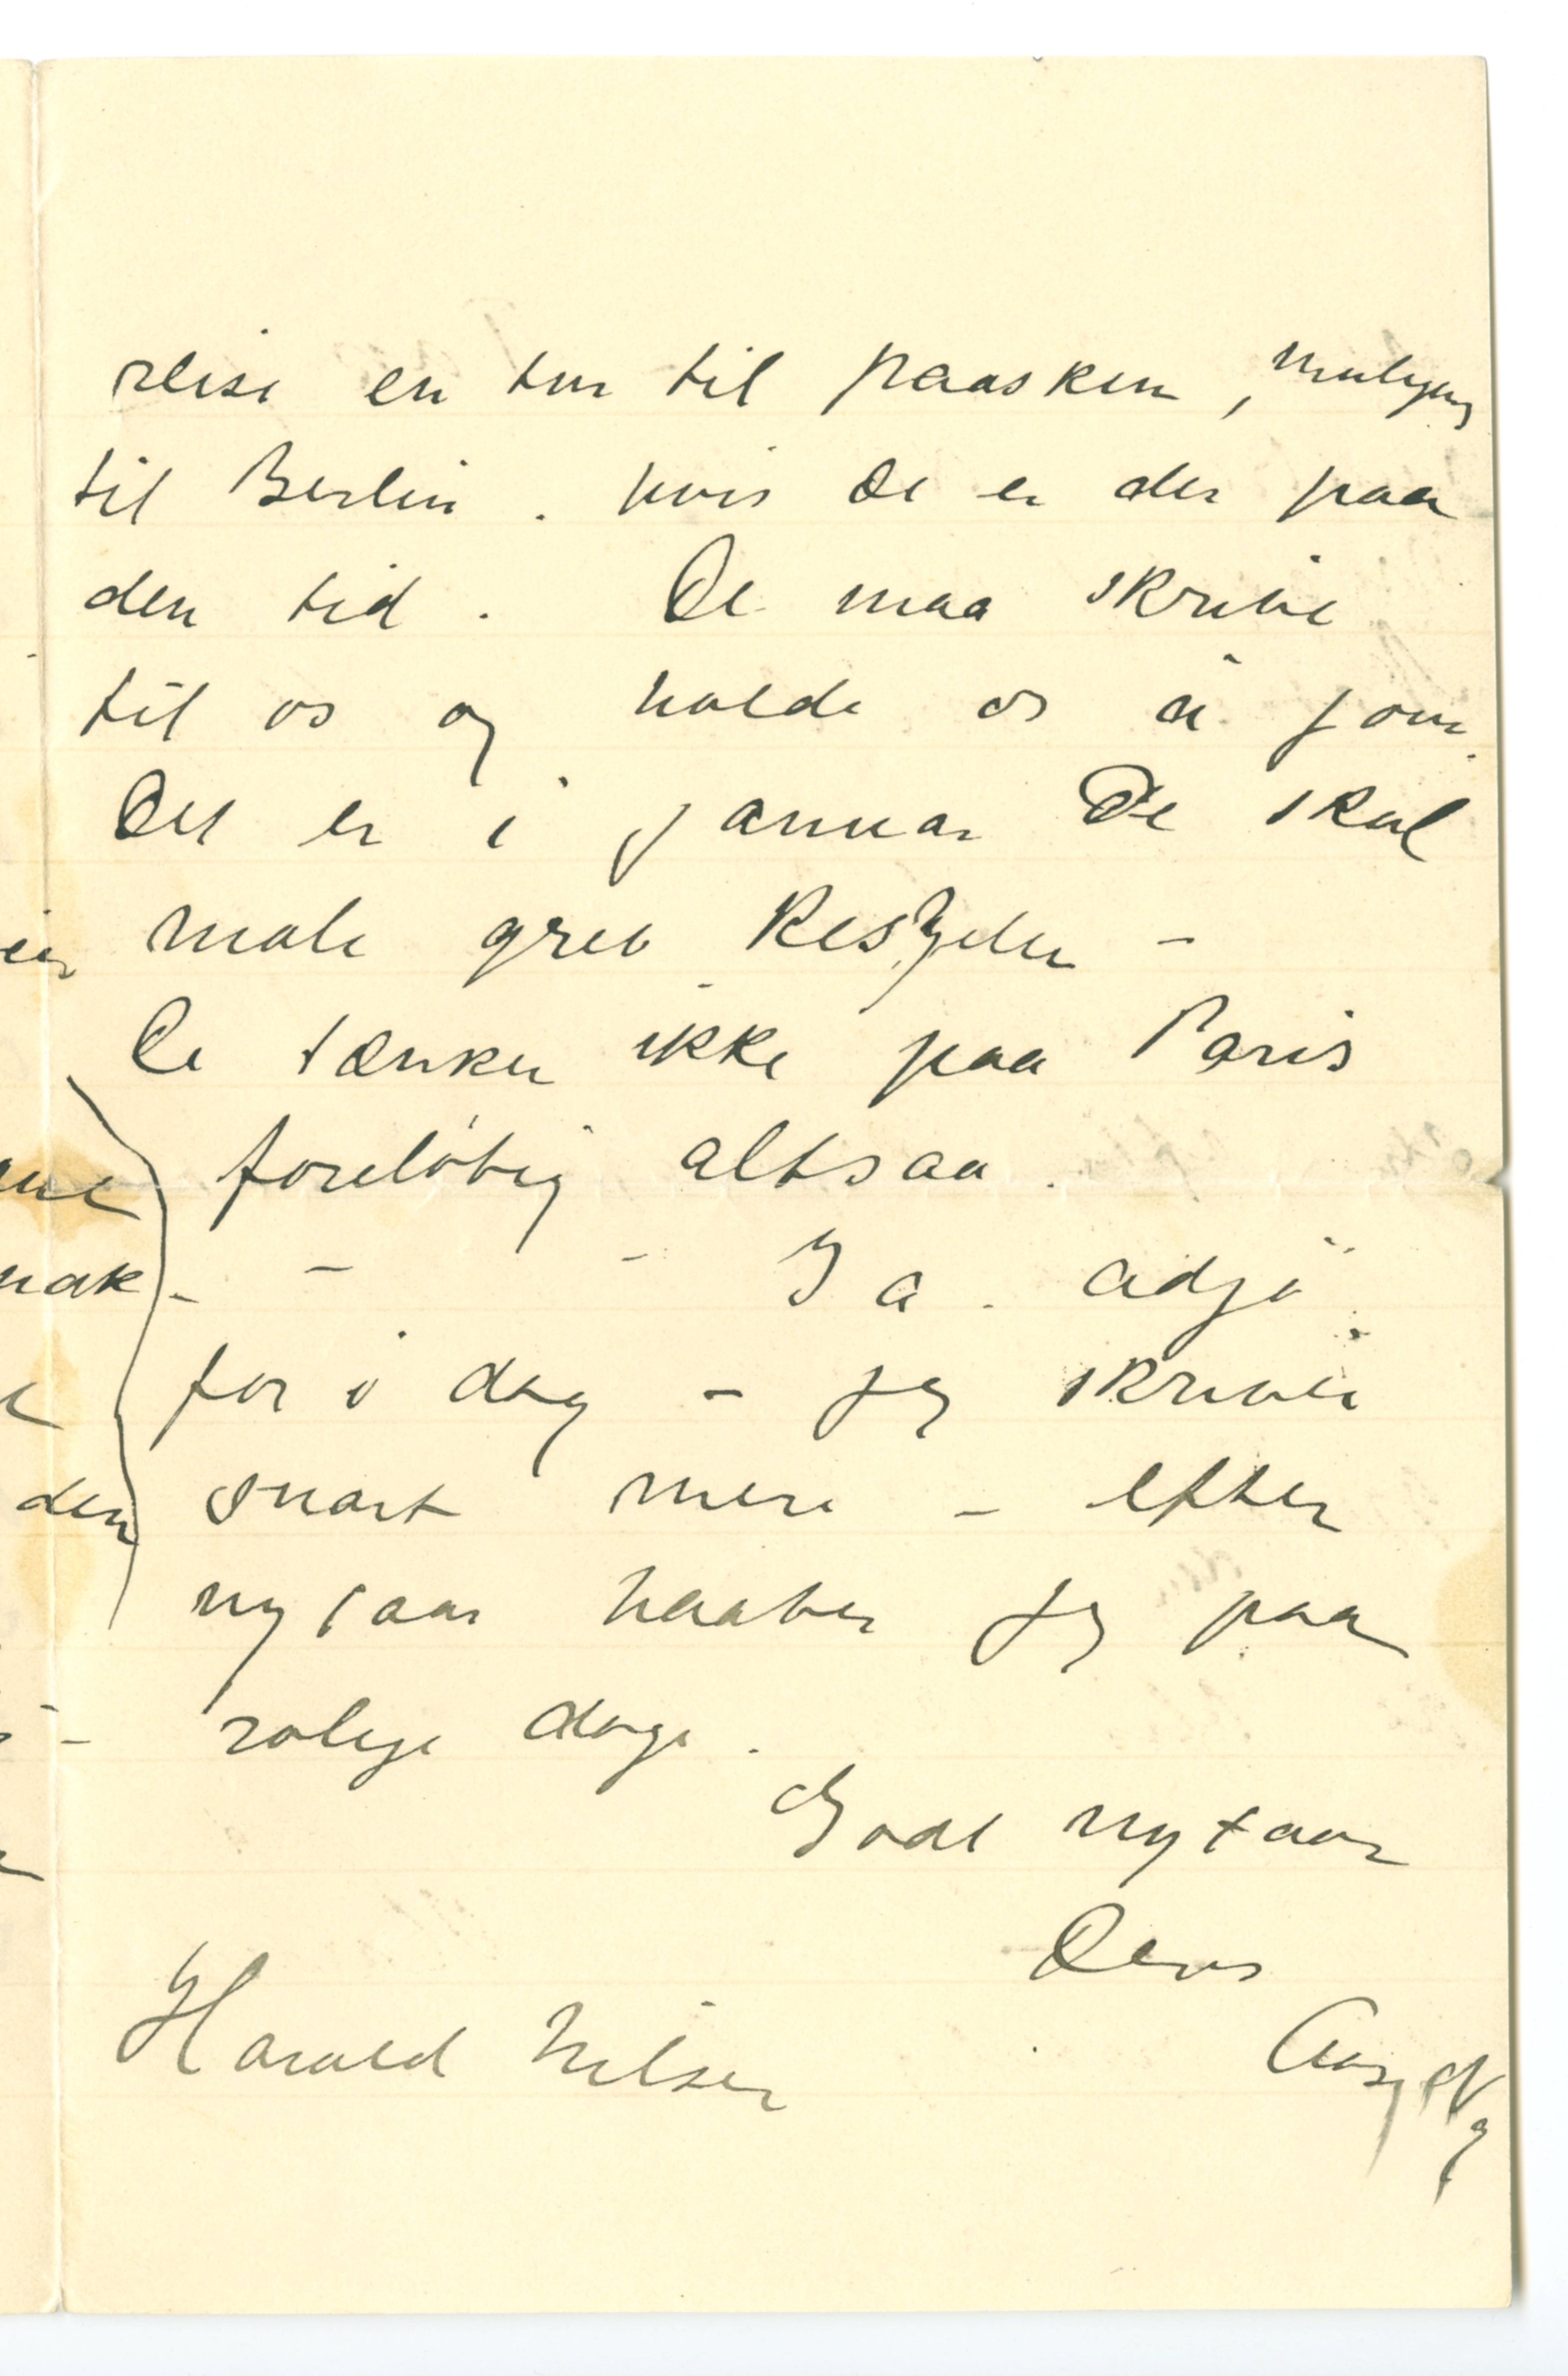 reise en tur til paasken, muligens
til Berlin. hvis De er der paa
den tid. De maa skrive
til os og holde os à jour.
Det er i januar De skal
male grev Kessler –
De tænker ikke paa Paris
foreløbig altsaa.
– – Ja. adjö
for i dag – jeg skriver
snart mere – efter
nytaar haaber jeg paa
rolige dage.
Godt nytaar
Deres
Harald Nilsen Aug
nak-
den